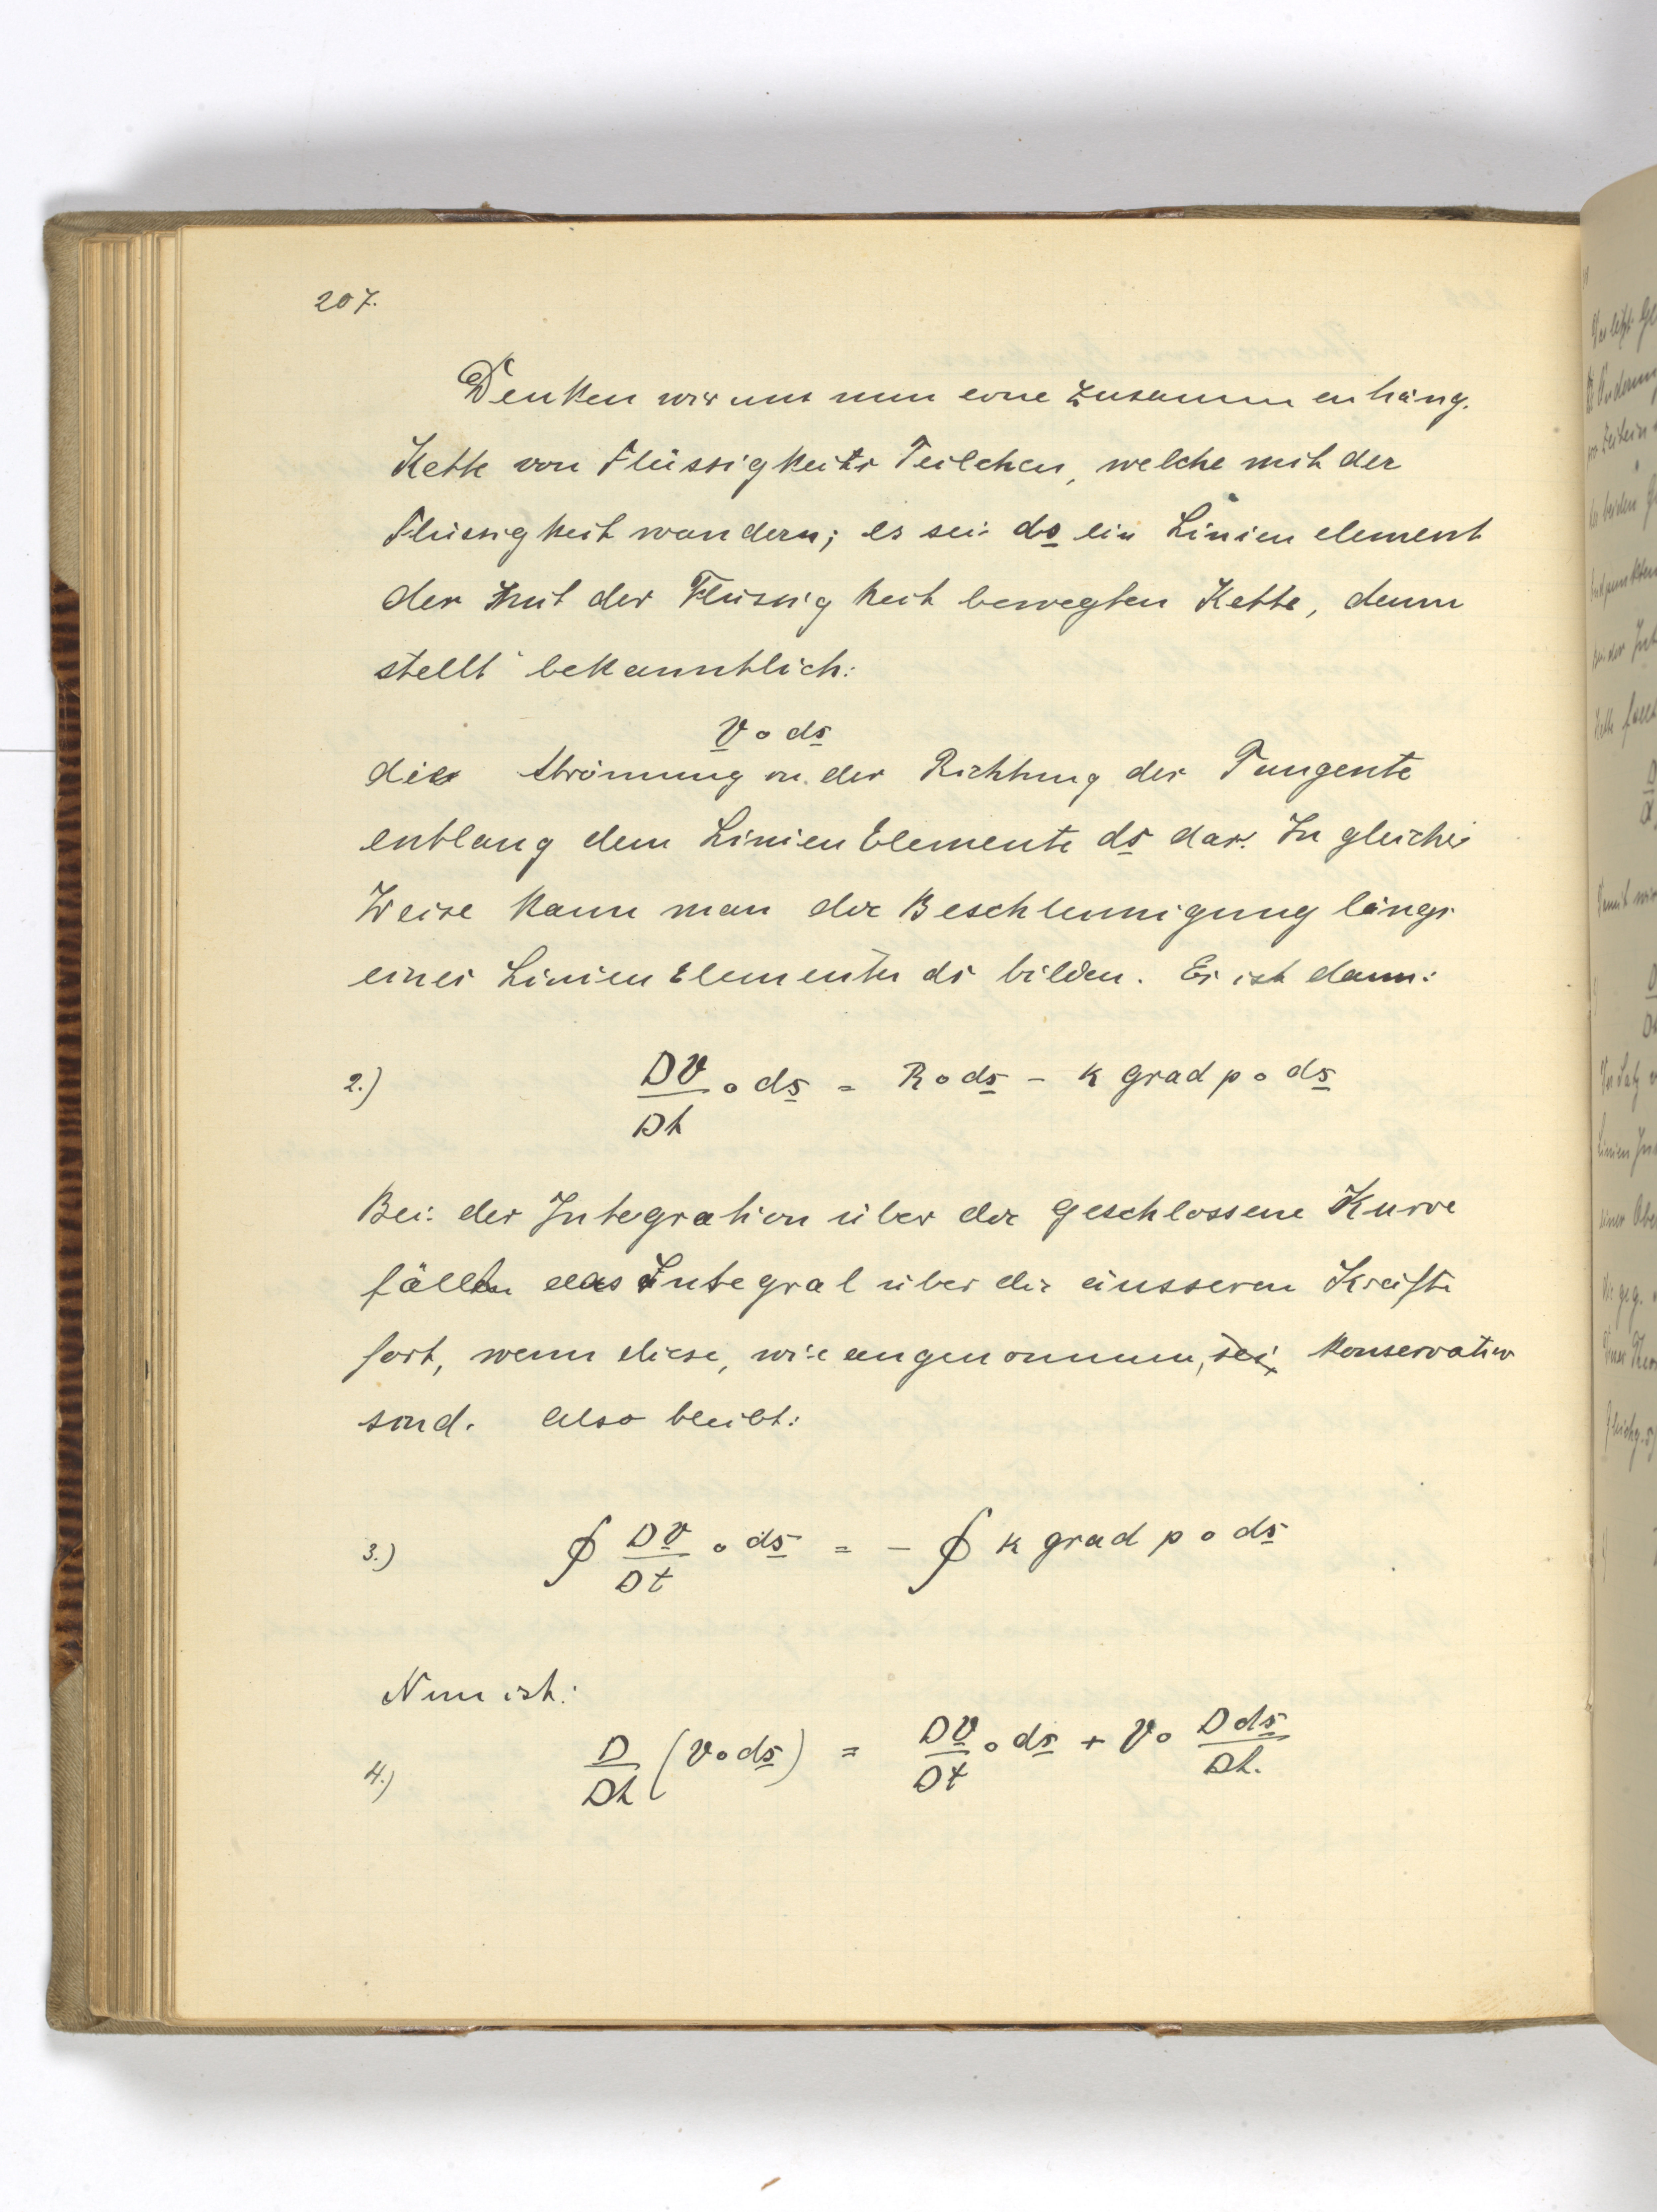 207.
Denken wir uns nun eine zusammenhäng.
Kette von Flüssigkeits Teilchen, welche mit der
Flüssigkeit wandern; es sei ds ein Linien element
der mit der Flüssigkeit bewegten Kette, dann
stellt bekanntlich:
v ∘ ds
die Strömung in der Richtung der Tangente
entlang dem Linien Elemente ds dar. In gleicher
Weise kann man die Beschleunigung längs
eines Linien Elementes ds bilden. Es ist dann:
2.) Dv/Dt ∘ ds = R ∘ ds - k grad p ∘ ds
Bei der Integration über die geschlossene Kurve
fällt das Integral über die äusseren Kräfte
fort, wenn diese, wie angenommen, konservativ
sind. Also bleibt:
3.) ∮ Dv/Dt ∘ ds = - ∮ k grad p ∘ ds
Nun ist:
4.) D/Dt (v ∘ ds) = Dv/Dt ∘ ds + v ∘ Dds/Dt.